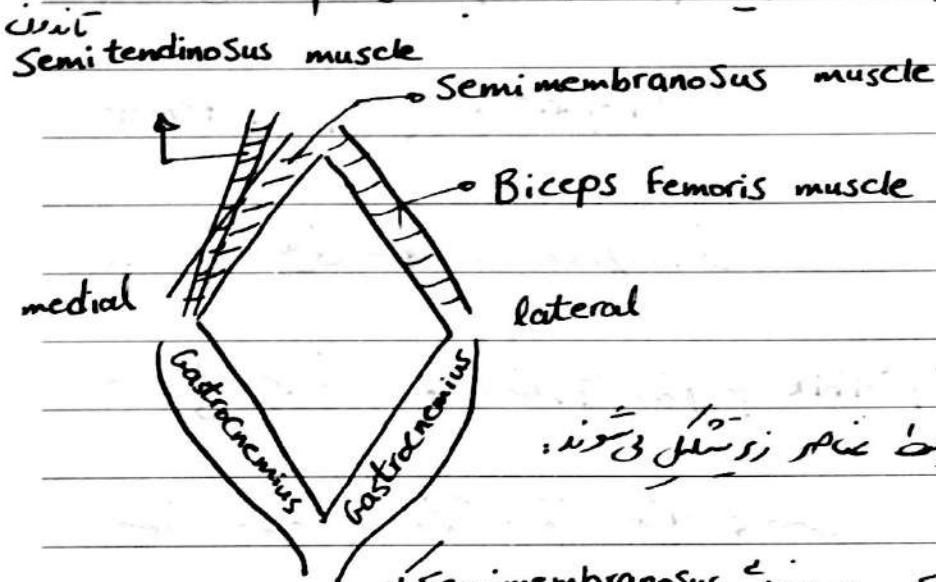 تاندون
Semitendinosus muscle
Semimembranosus muscle
Biceps Femoris muscle
medial
lateral
Gastrocnemius
Gastrocnemius
عناصر زیر تشکیل می‌شوند:
Semimembranosus